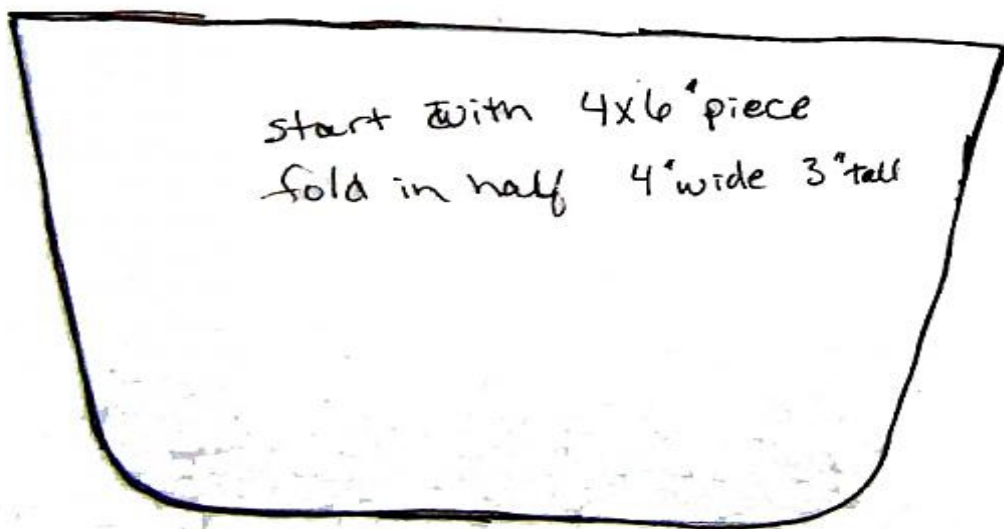 start with 4x6" piece
fold in half 4" wide 3" tall